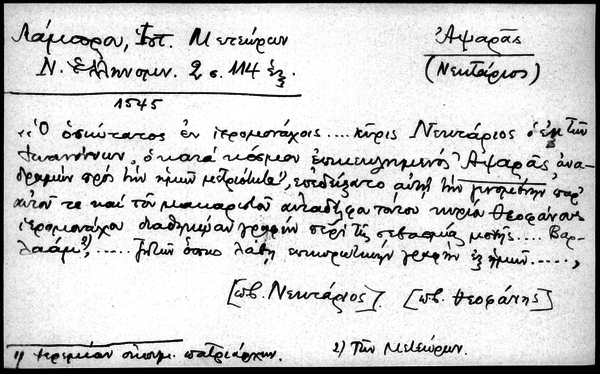 Λάμπρου, Ἱστ. Μετεώρων
Ἀψαρᾶς
Ν. Ἑλληνομν. 2 σ. 114 ἑξ.
(Νεκτάριος)
1545
,, Ὁ ὁσιώτατος ἐν ἱερομονάχοις .... κῦρις Νεκτάριος ὁ ἐκ τῶν
Ἰωαννίνων, ὁ κατὰ κόσμον ἐπικεκλημένος Ἀψαρᾶς, ἀνα-
δραμὼν πρὸς τὴν ἡμῶν μετριότητα¹⁾, ἐπεδείξατο αὐτῇ τὴν γενομένην παρ'
αὐτοῦ τε καὶ τοῦ μακαρίτου αὐταδέλφου τούτου κυρίου Θεοφάνους
ἱερομονάχου διαθηκῴαν γραφὴν περὶ τῆς σεβασμίας μονῆς .... Βαρ-
λαάμ²⁾, ..... ζητῶν ὅπως λάβῃ ἐπικυρωτικὴν γραφὴν ἐξ ἡμῶν .....,,
[πβ. Νεκτάριος]. [πβ. Θεοφάνης]
1) Ἱερεμίαν οἰκουμ. πατριάρχην.
2) Τῶν Μετεώρων.